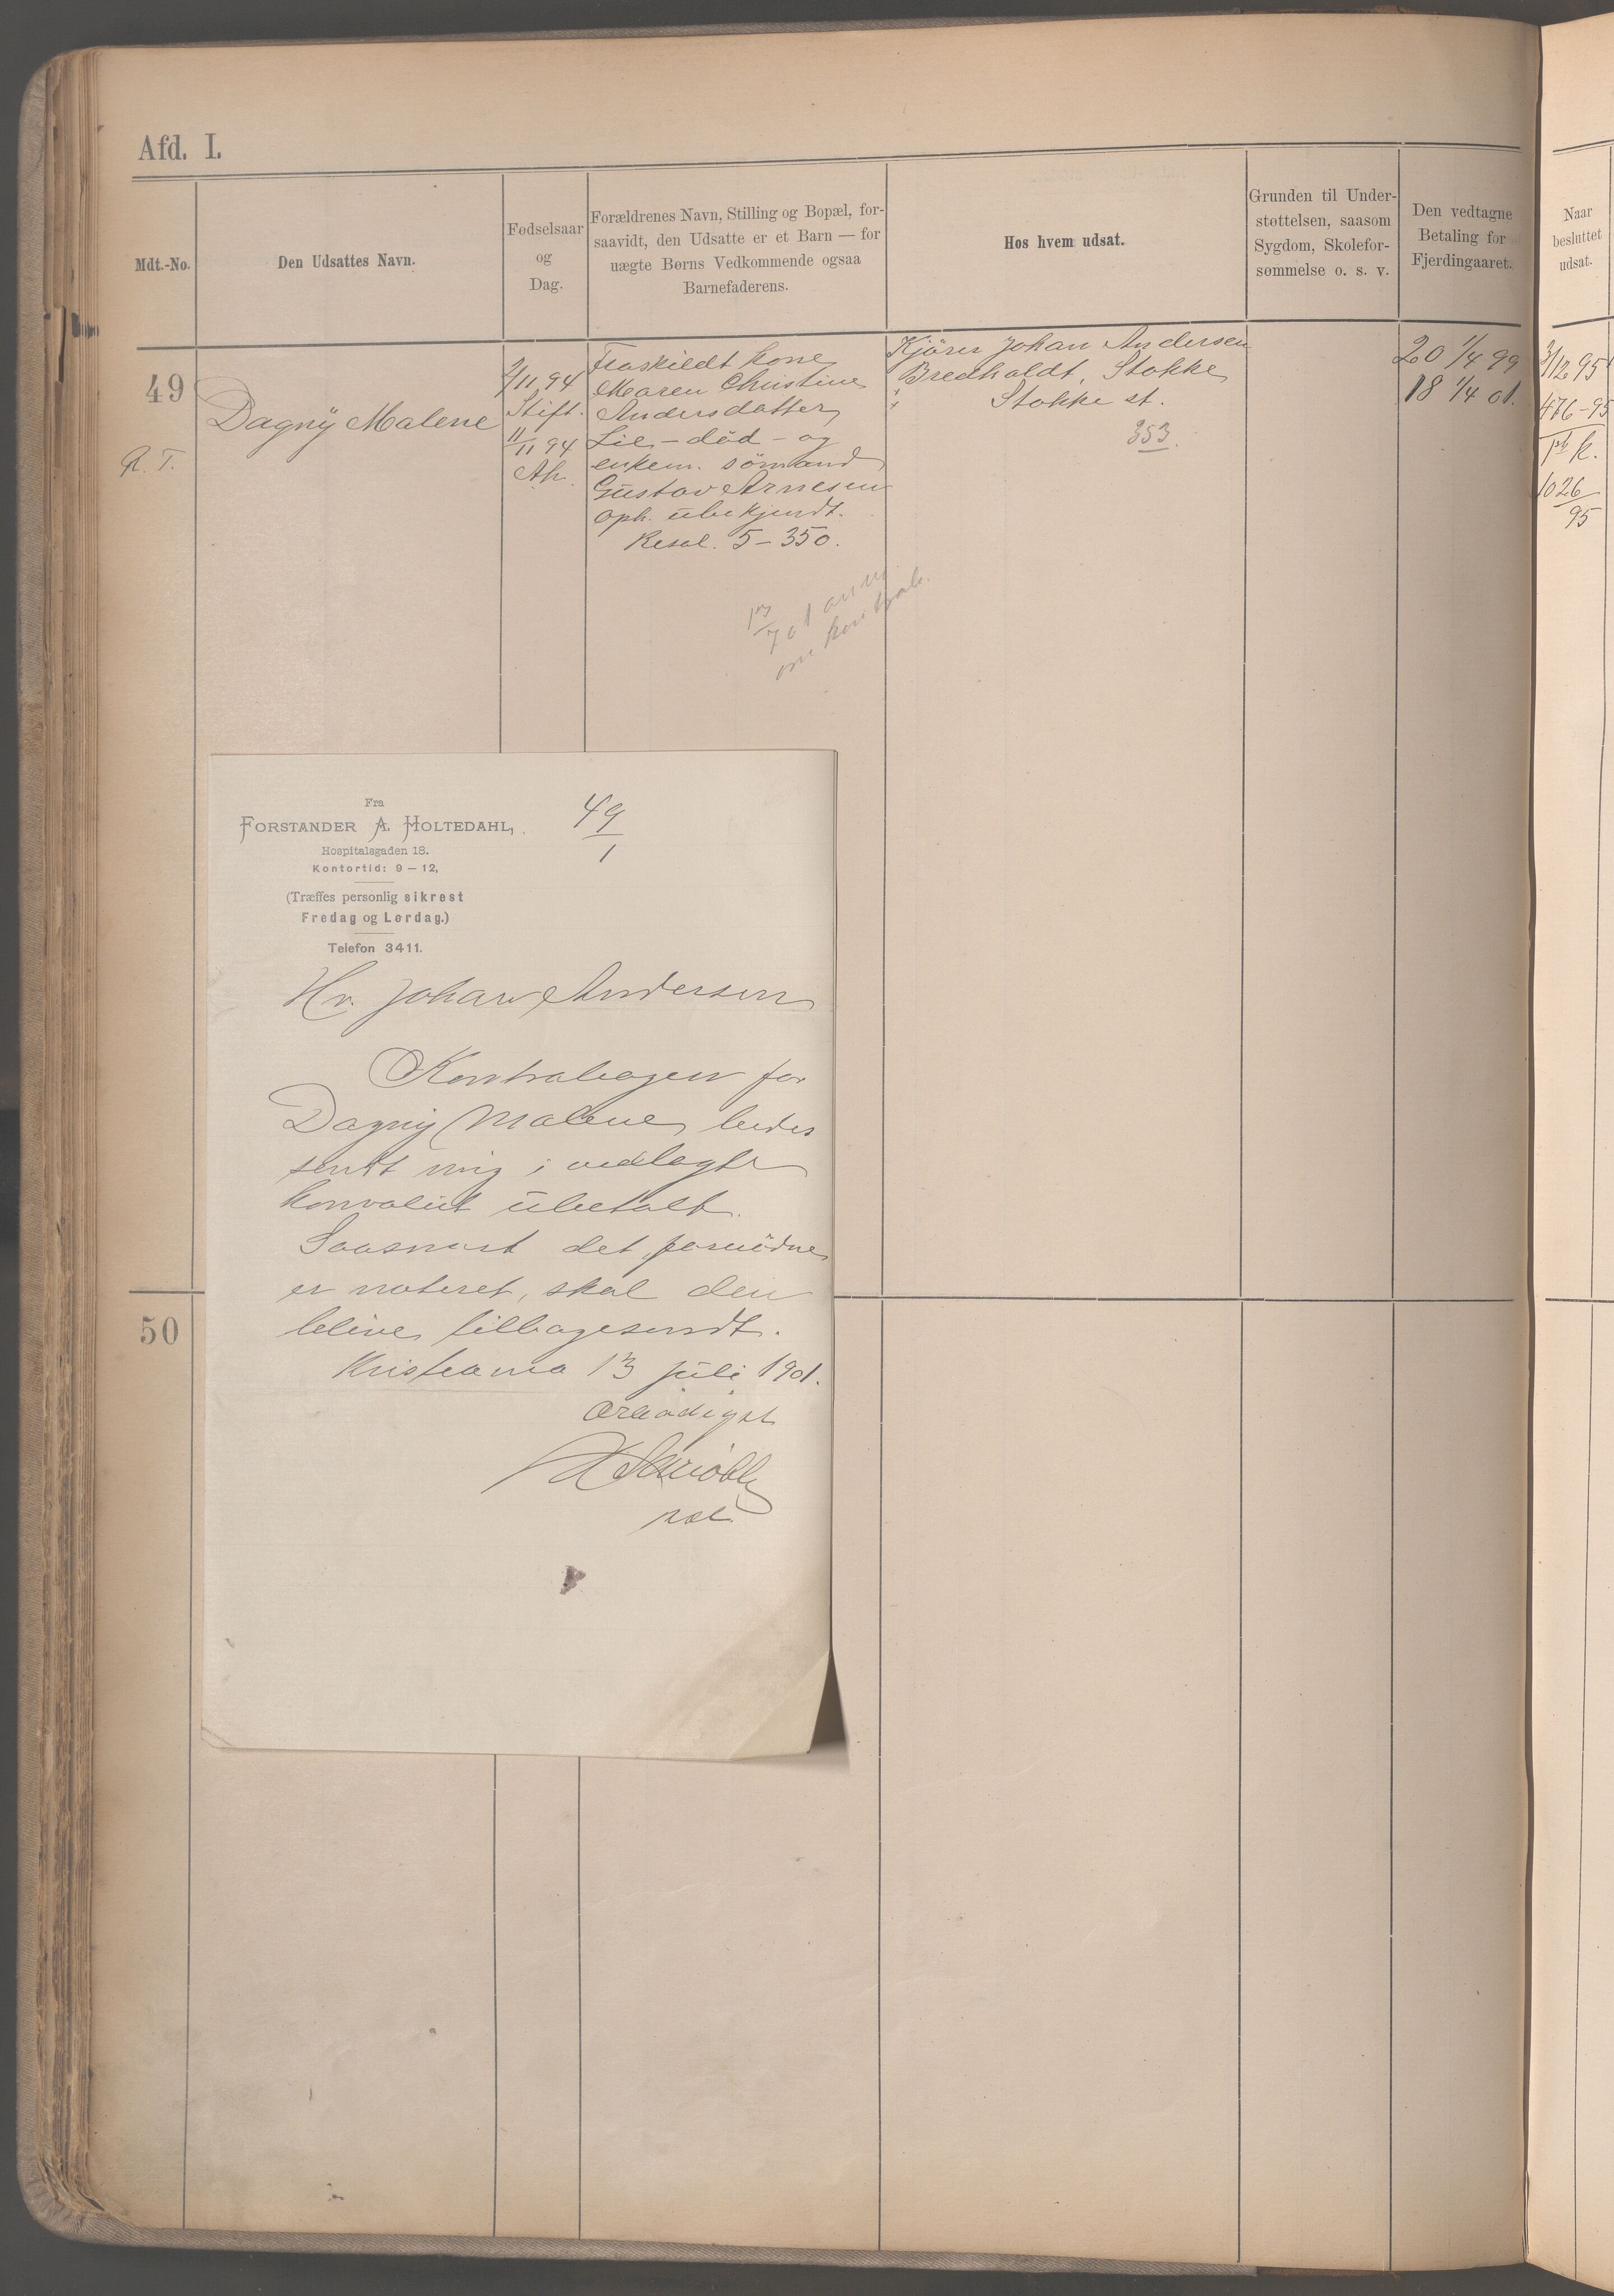 Afd. I.
Mdt.-No.
Den Udsattes Navn.
Fødselsaar
og
Dag.
Forældrenes Navn, Stilling og Bopæl, for-
saavidt, den Udsatte er et Barn — for
uægte Børns Vedkommende ogsaa
Barnefaderens.
Hos hvem udsat.
Grunden til Under-
støttelsen, saasom
Sygdom, Skolefor-
sømmelse o. s. v.
Den vedtagne
Betaling for
Fjerdingaaret.
Naar
besluttet
udsat.
49
R. T.
Dagny Malene
2/11 94
Stift.
11/11 94
Ak.
Fraskildt kone
Maren Christine
Andersdatter
Lie - död - og
enkem. sömand
Gustav Arnesen
oph. ubekjendt.
Resol. 5 - 350.
Kjörer Johan Andersen
Bredholdt, Stokke
Stokke st.
353.
20 1/4 99
18 1/4 01.
3/12 95
476-95
k.
1026/95
13/7 01 anm.
om kontrab.
Fra
FORSTANDER A. HOLTEDAHL,
Hospitalsgaden 18.
Kontortid: 9 — 12,
(Træffes personlig sikrest
Fredag og Lørdag.)
Telefon 3411.
49/1
Hr. Johan Andersen
Kontrabogen for
Dagny Malene bedes
sendt mig i vedlagte
konvolut ubetalt.
Saasnart det fornødne
er noteret, skal den
blive tilbagesendt.
Kristiania 13 juli 1901.
Ærbødigst
50